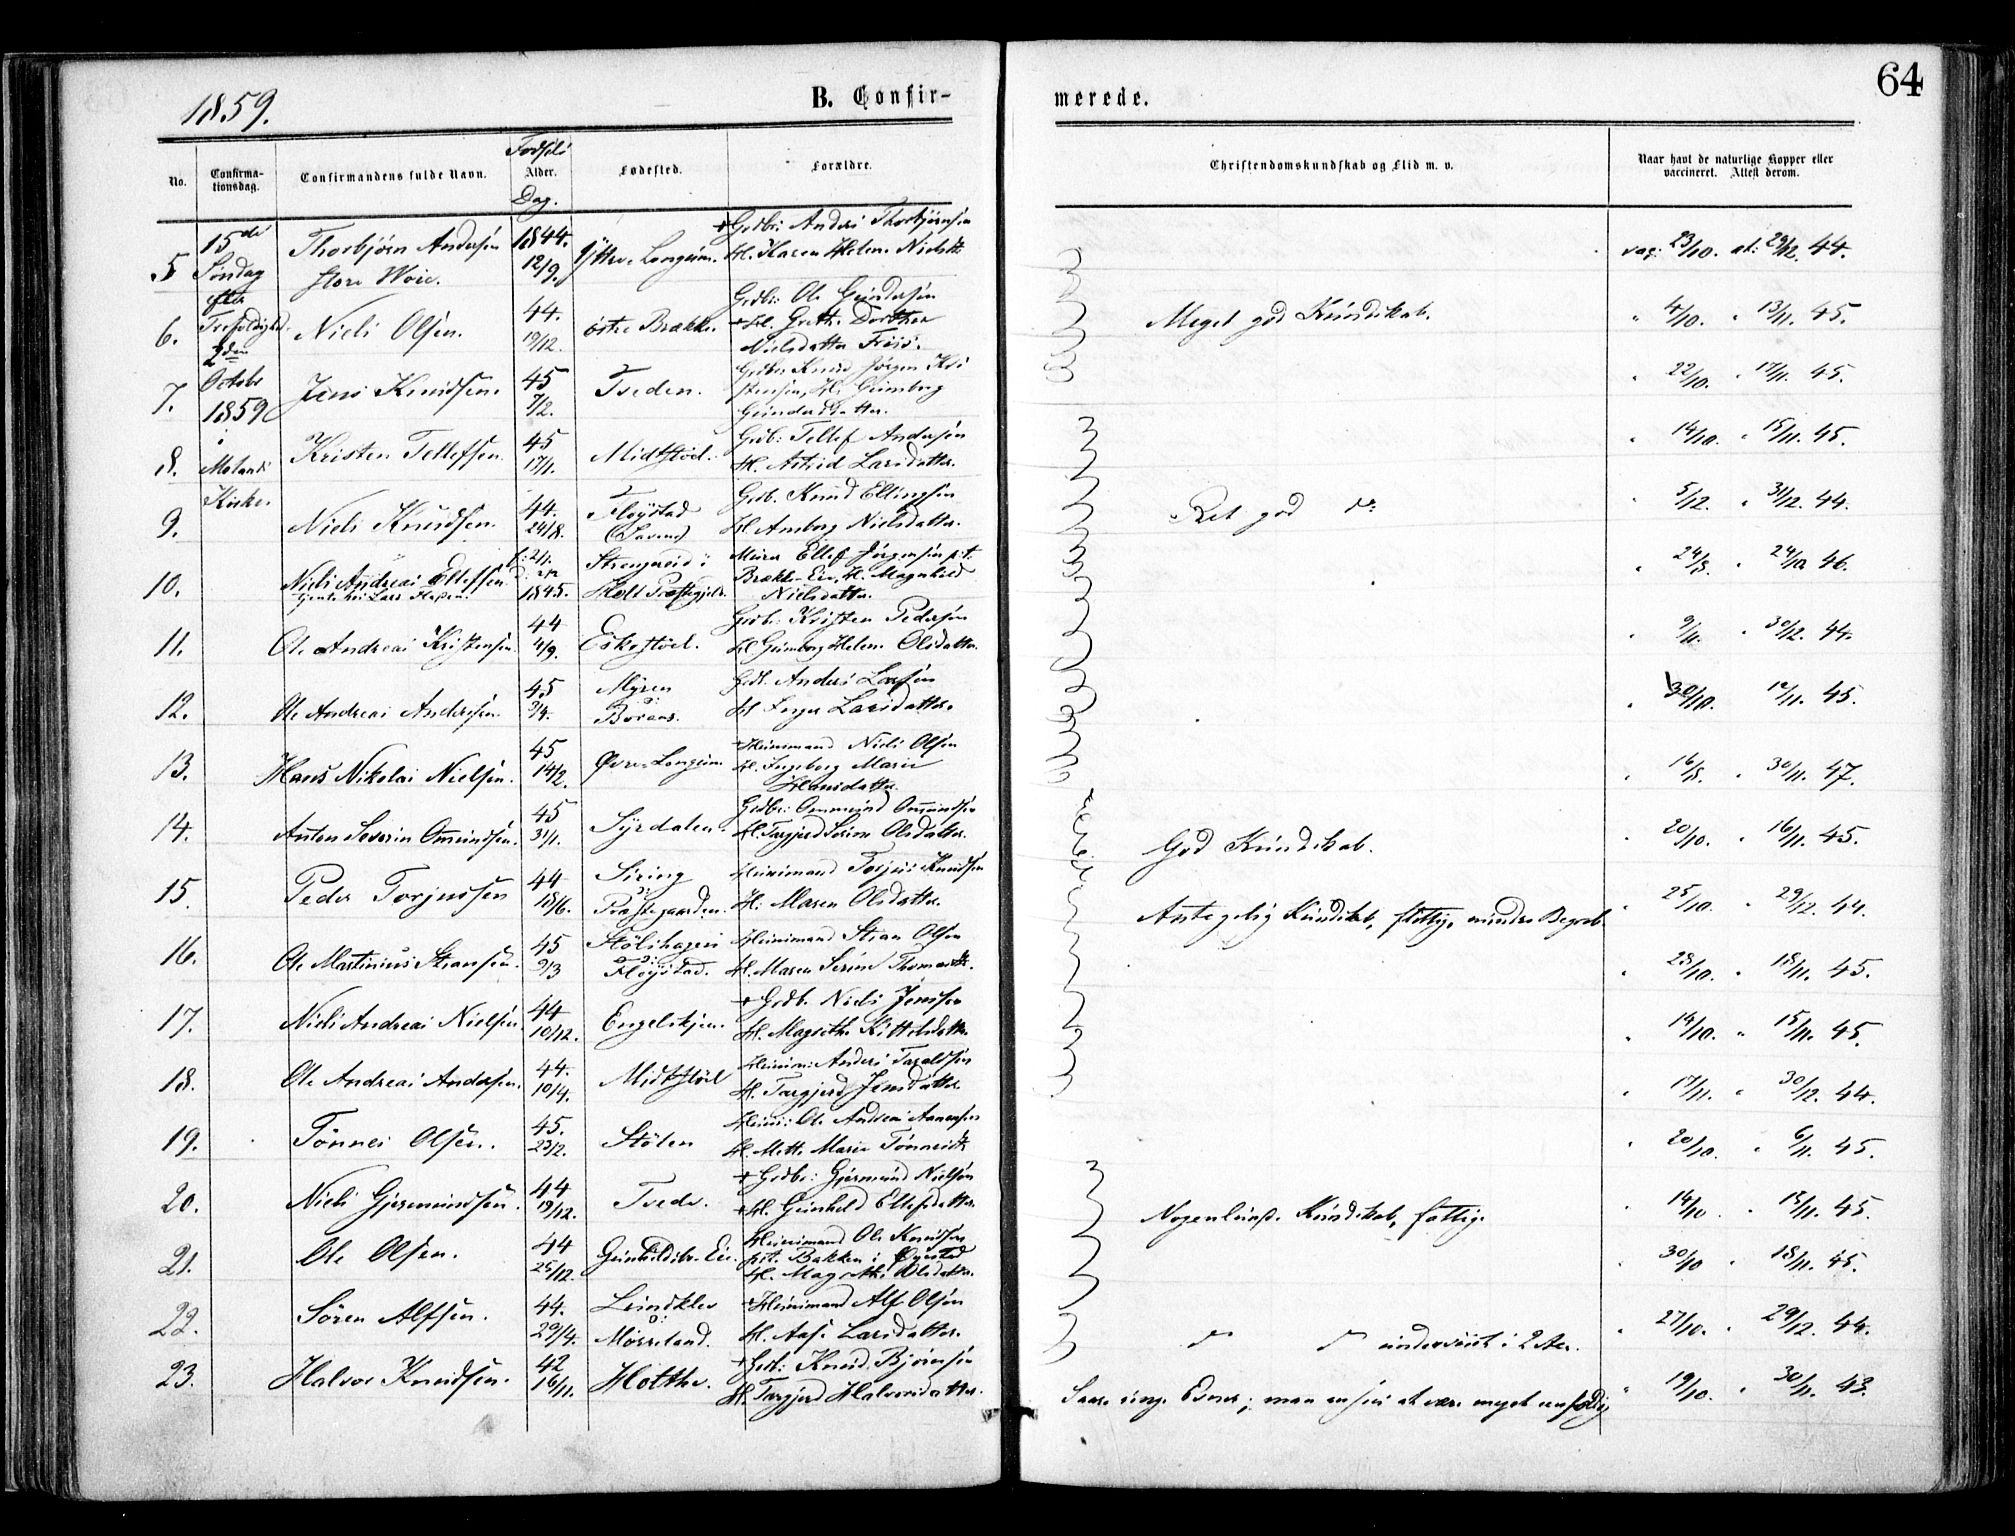 64
1859.
B. Confir-
merede.
No.
Confirma-
tionsdag.
Confirmandens fulde Navn.
Fødsels
Alder.
Dag.
Fødested.
Forældre.
Christendomskundskab og Flid m. v.
Naar havt de naturlige Kopper eller
vaccineret. Attest derom.
15de
Søndag
efter
Trefoldighed
2den
Octobr
1859
i
Molands
Kirke.
5 Thorbjørn Andersen 1844. 12/9. Yttre Longum. + Grdbr: Anders Thorbjørnsen
H. Karen Helene Nielsdtr vac: 23/10. at: 29/12. 44.
6. Niels Olsen. 44. 19/12. østre Brække. Grdbr: Ole Gundersen
+ H. Grethe Dorthea
Nielsdatter
Meget god Kundskab. " 4/10. " 13/11. 45.
7. Jens Knudsen. 45 7/2. Tveden. Grdbr Knud Jørgen Kri
stensen, H. Gunborg
Gundersdatter. " 22/10. " 17/11. 45.
8. Kristen Tellefsen 45 17/1. Midtstøl. Grdb: Tellef Andersen
H. Astrid Larsdatter. " 14/10. " 15/11. 45.
9. Niels Knudsen. 44. 24/8. Fløystad
Grdb. Knud Ellingsen
H Amborg Nielsdatter. Ret god do: " 5/12. " 31/12. 44.
10. Niels Andreas Ellefsen 1845. Strengereid i
Holt Præstegjeld. Murer Ellef Jørgensen p.t.
Brække Eie, H. Magnhild
Nielsdatter. " 24/8. " 46.
11. Ole Andreas Kristensen. 44 4/9. Eskestøel. Grdb: Kristen Pedersen
H Gunborg Helene Olsdatter. " " 30/12. 44.
12. Ole Andreas Andersen. 45 Myren
Grdb. Anders Larsen
H Inger Larsdatter. " 30/10. " 45.
13. Hans Nikolai Nielsen. 45 14/2. Øvre Longum + Huusmand Niels Olsen
H. Ingeborg Marie
Hansdatter. " 16/8. " 30/11. 47.
14. Anton Severin Omundsen. 45 31/1. Syrdalen. Grdbr: Ommund Omundsen
H. Torgjerd Serine Olsdatter. God Kundskab. " 20/10. " 16/11. 45.
15 Peder Torjussen 44 18/6. Præstegaarden. Huusmand Torjus Knudsen
H: Maren Olsdatter. Antagelig Kundskab, flittig, mindre Begreb. " 25/10. " 29/12. 44.
16. Ole Martinius Stiansen. 45 9/3 Stølshagen
Fløystad. Huusmand Stian Olsen
H. Maren Serine Thomasdtr. " 28/10. " 18/11. 45.
17. Niels Andreas Nielsen. 44 10/12. Engelskjøn. + Grdb. Niels Jensen
H. Magrethe Kittelsdatter " 14/10. " 15/11. 45.
18. Ole Andreas Andersen. 44. 10/4. Midtstøel Huusm: Anders Taraldsen
H. Torgjerd Jensdatter. " 17/11. " 30/12. 44.
19. Tønnes Olsen. 45. 23/2. Stølen Huusm: Ole Andreas Aanensen
H. Mette Marie Tønnesdtr " 20/10. " 6/11. 45.
20. Niels Gjermundsen. 44 19/12. Tvede. + Grdbr: Gjermund Nielsen
+ H. Gunhild Ellefsdatter. Nogenlunde Kundskab, flittig. " 14/10 " 15/11. 45.
21. Ole Olsen. 44 25/12. Eie. Huusmand Ole Knudsen
p.t. Bakken i Øyestad
H. Magrethe Olsdatter. " 30/10 " 18/11. 45.
22. Søren Alfsen. 44. 29/4. Lundkler
Mørreland. + Huusmand Alf Olsen
H. Aase Larsdatter. do do underviist i 2 Aar. " 27/10. " 29/12. 44.
23. Halvor Knudsen. 42 16/11. Holthe. + Grdb: Knud Bjørnsen
H. Torgjerd Halvorsdatter. Saare ringe Evner; man ansees at være meget enfoldig " 19/10. " 30/11. 43.